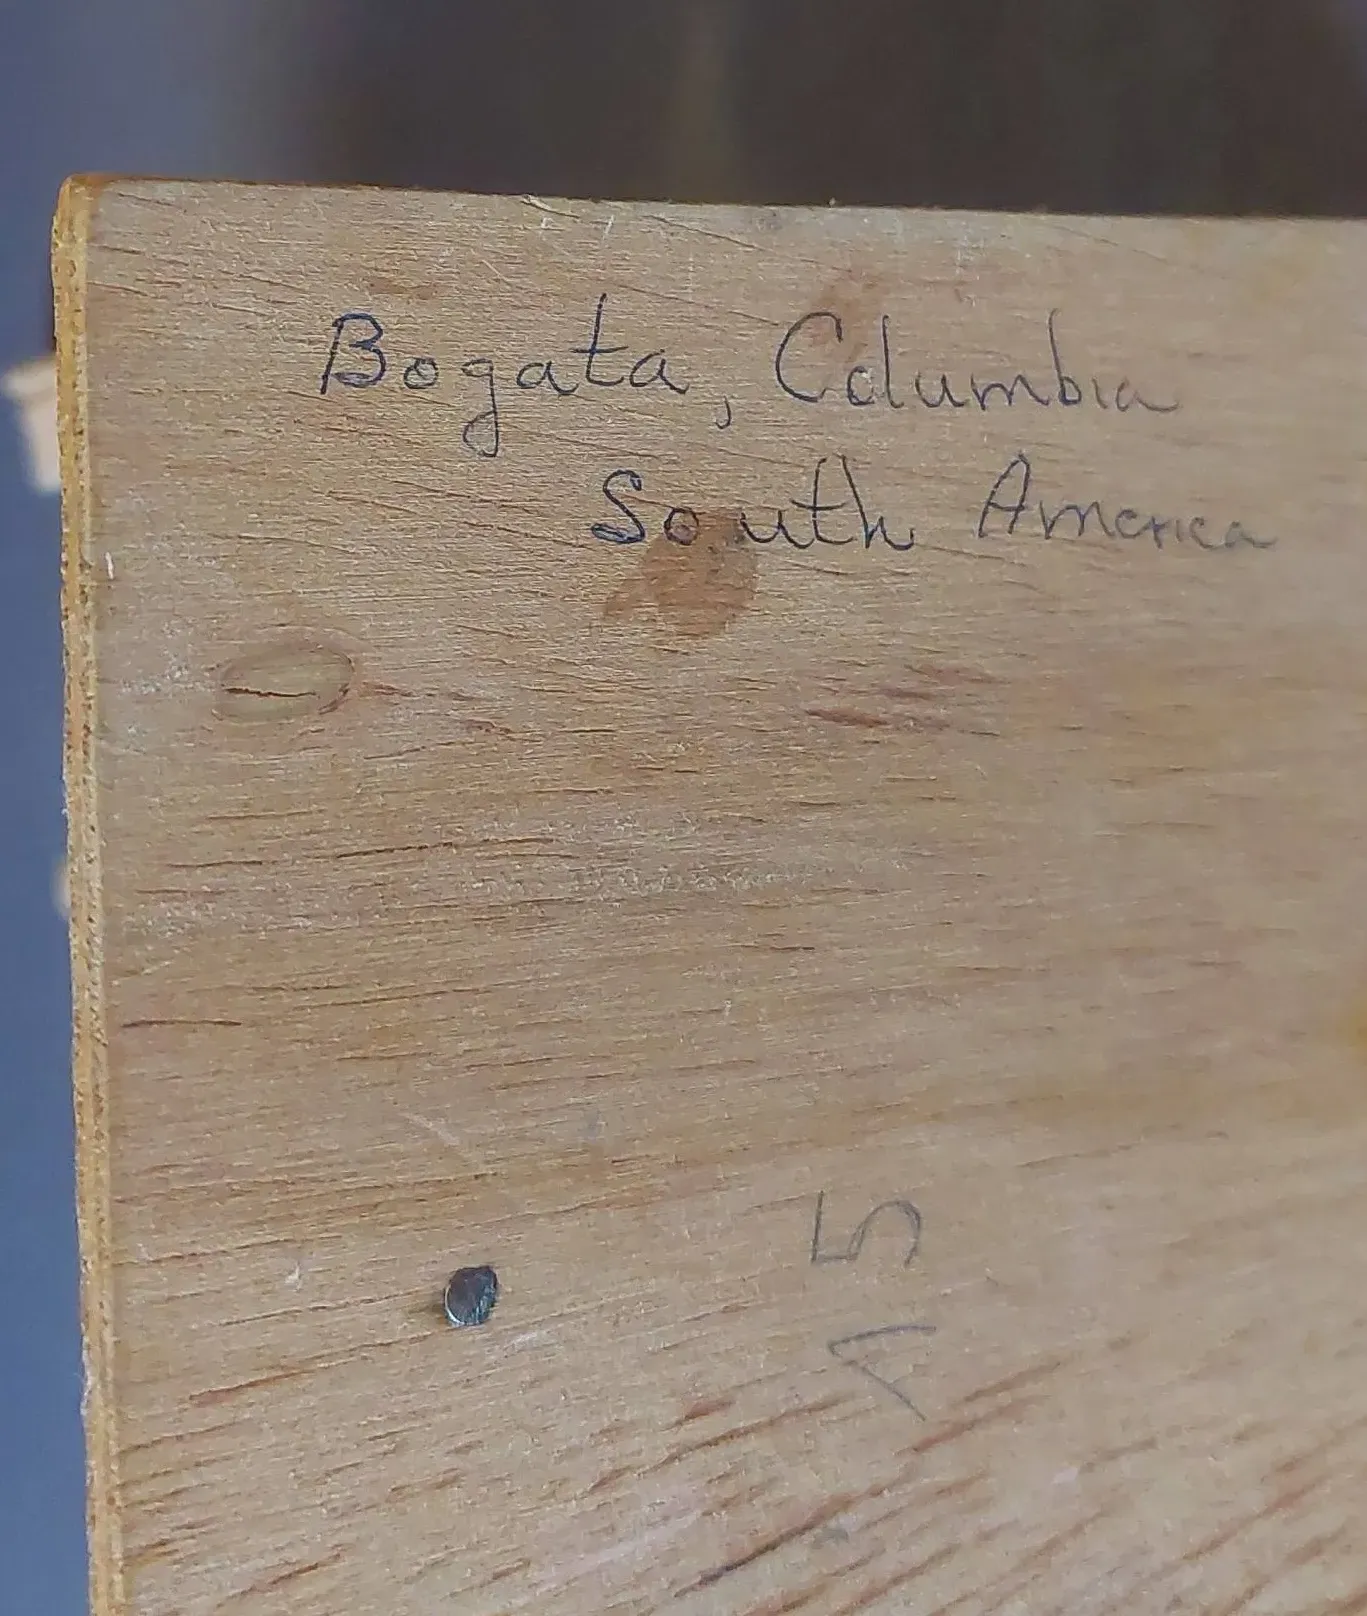 Bogata, Columbia
South America